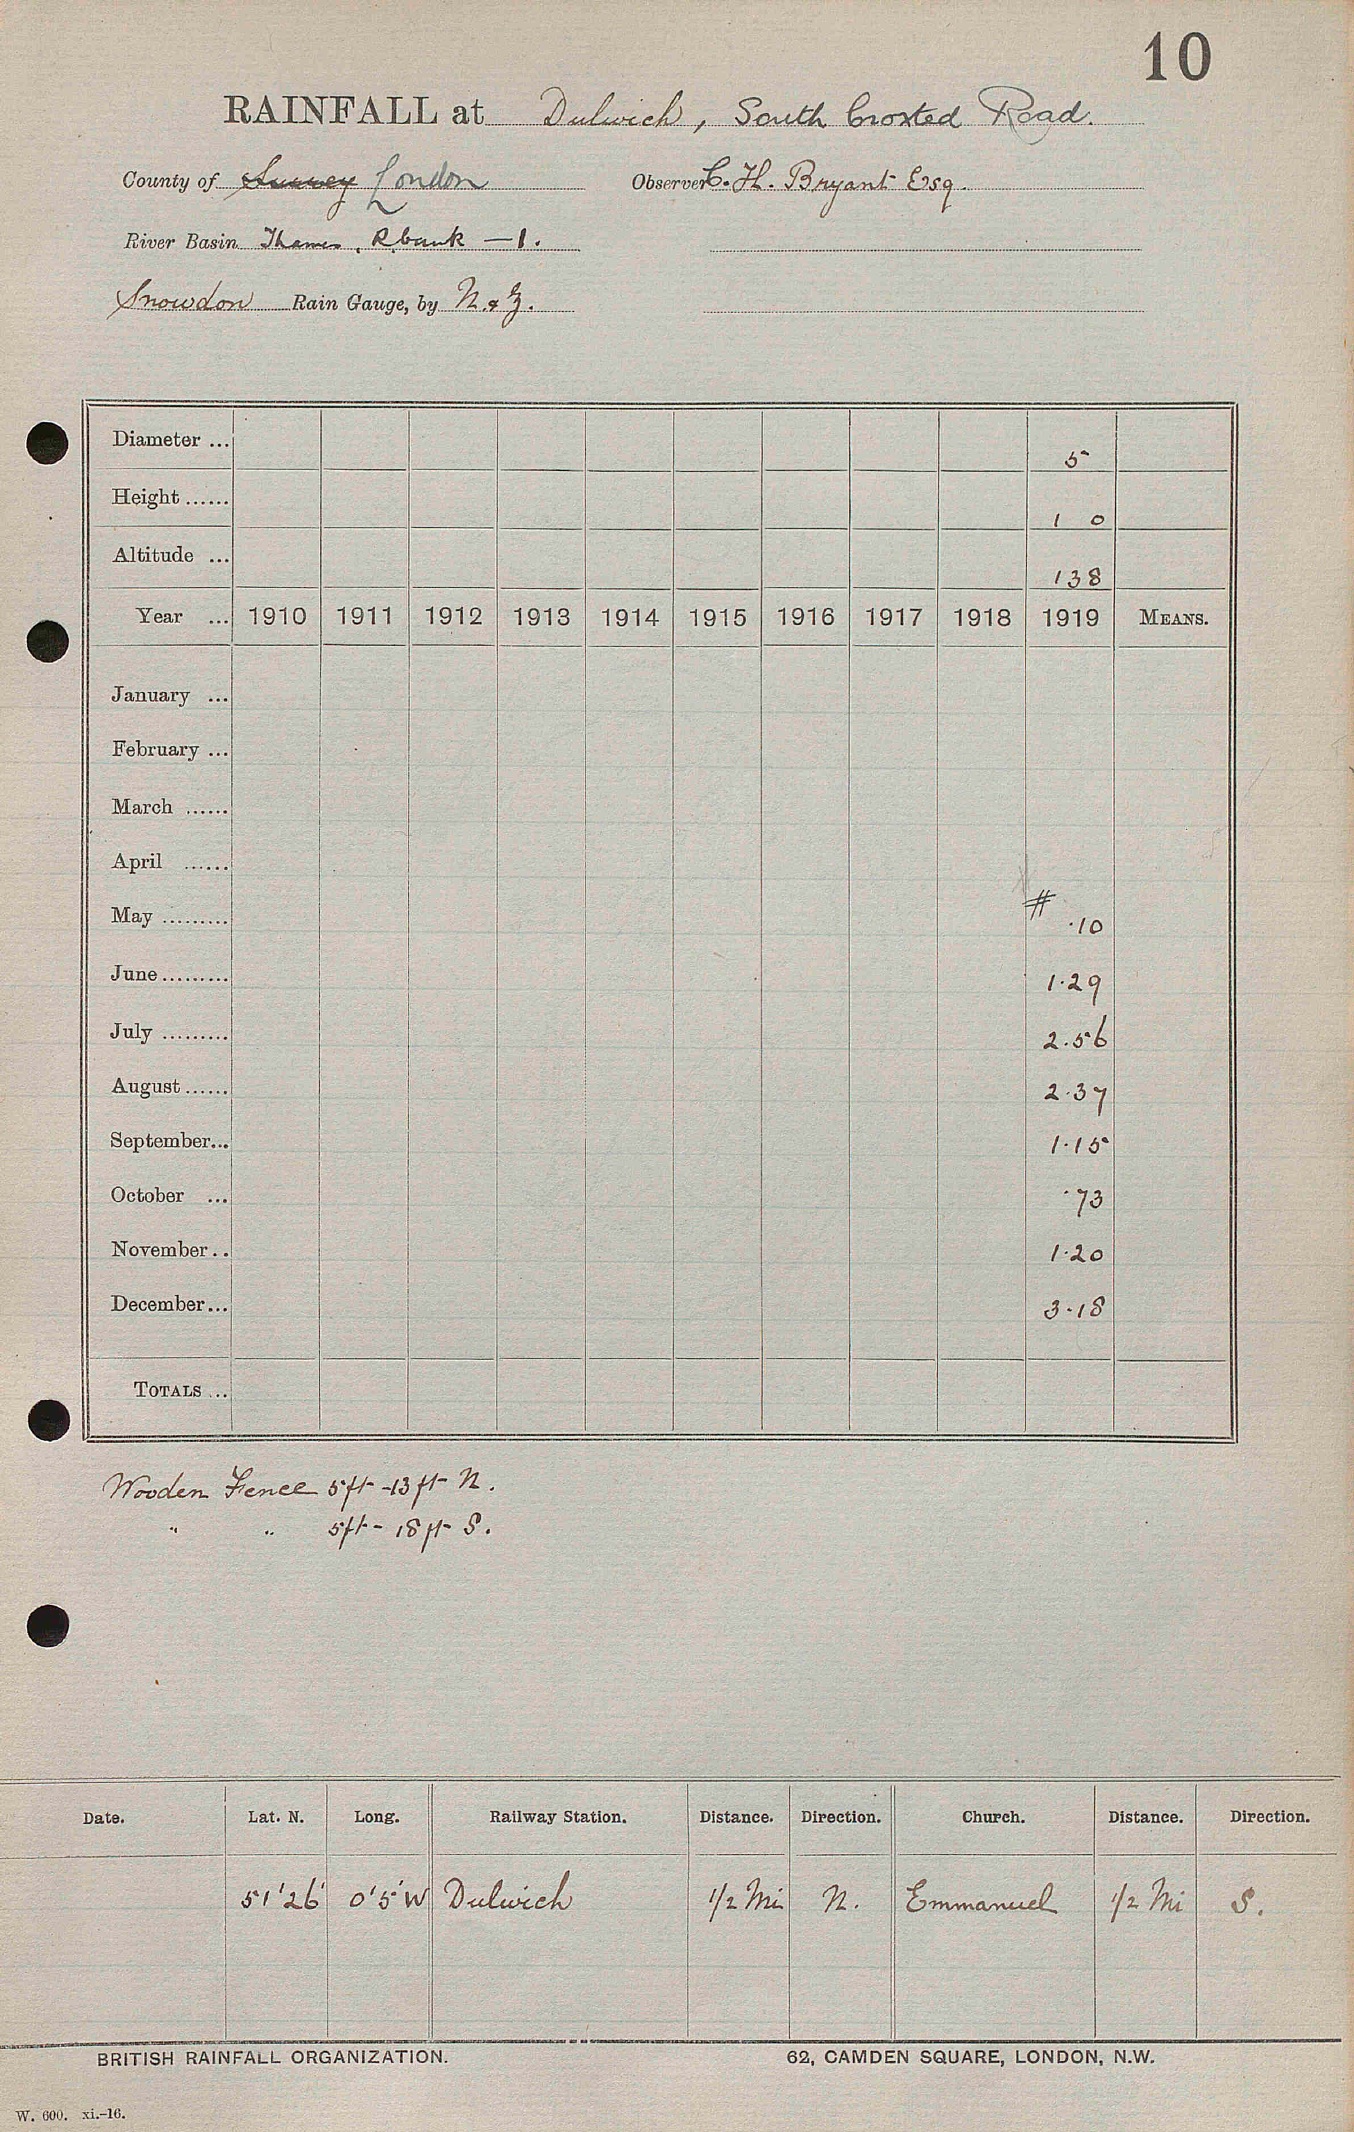 10
RAINFALL at Dulwich, South Croxted Road.
County of Surrey London Observer C. H. Bryant Esq.
River Basin Thames, R. bank — 1.
Snowdon Rain Gauge, by N. & Z.
Diameter ... 5
Height ...... 1 0
Altitude ... 138
Year ... 1910 1911 1912 1913 1914 1915 1916 1917 1918 1919 MEANS.
January ...
February ...
March ......
April ......
May ......... # ·10
June ......... 1·29
July ......... 2·56
August ...... 2·37
September... 1·15
October ... ·73
November.. 1·20
December... 3·18
TOTALS ...
Wooden Fence 5ft - 13 ft N.
" " 5ft - 18 ft S.
Date. Lat. N. Long. Railway Station. Distance. Direction. Church. Distance. Direction.
51'26' 0'5'W Dulwich 1/2 Mi N. Emmanuel 1/2 Mi S.
BRITISH RAINFALL ORGANIZATION. 62, CAMDEN SQUARE, LONDON, N.W.
W. 600. xi.-16.